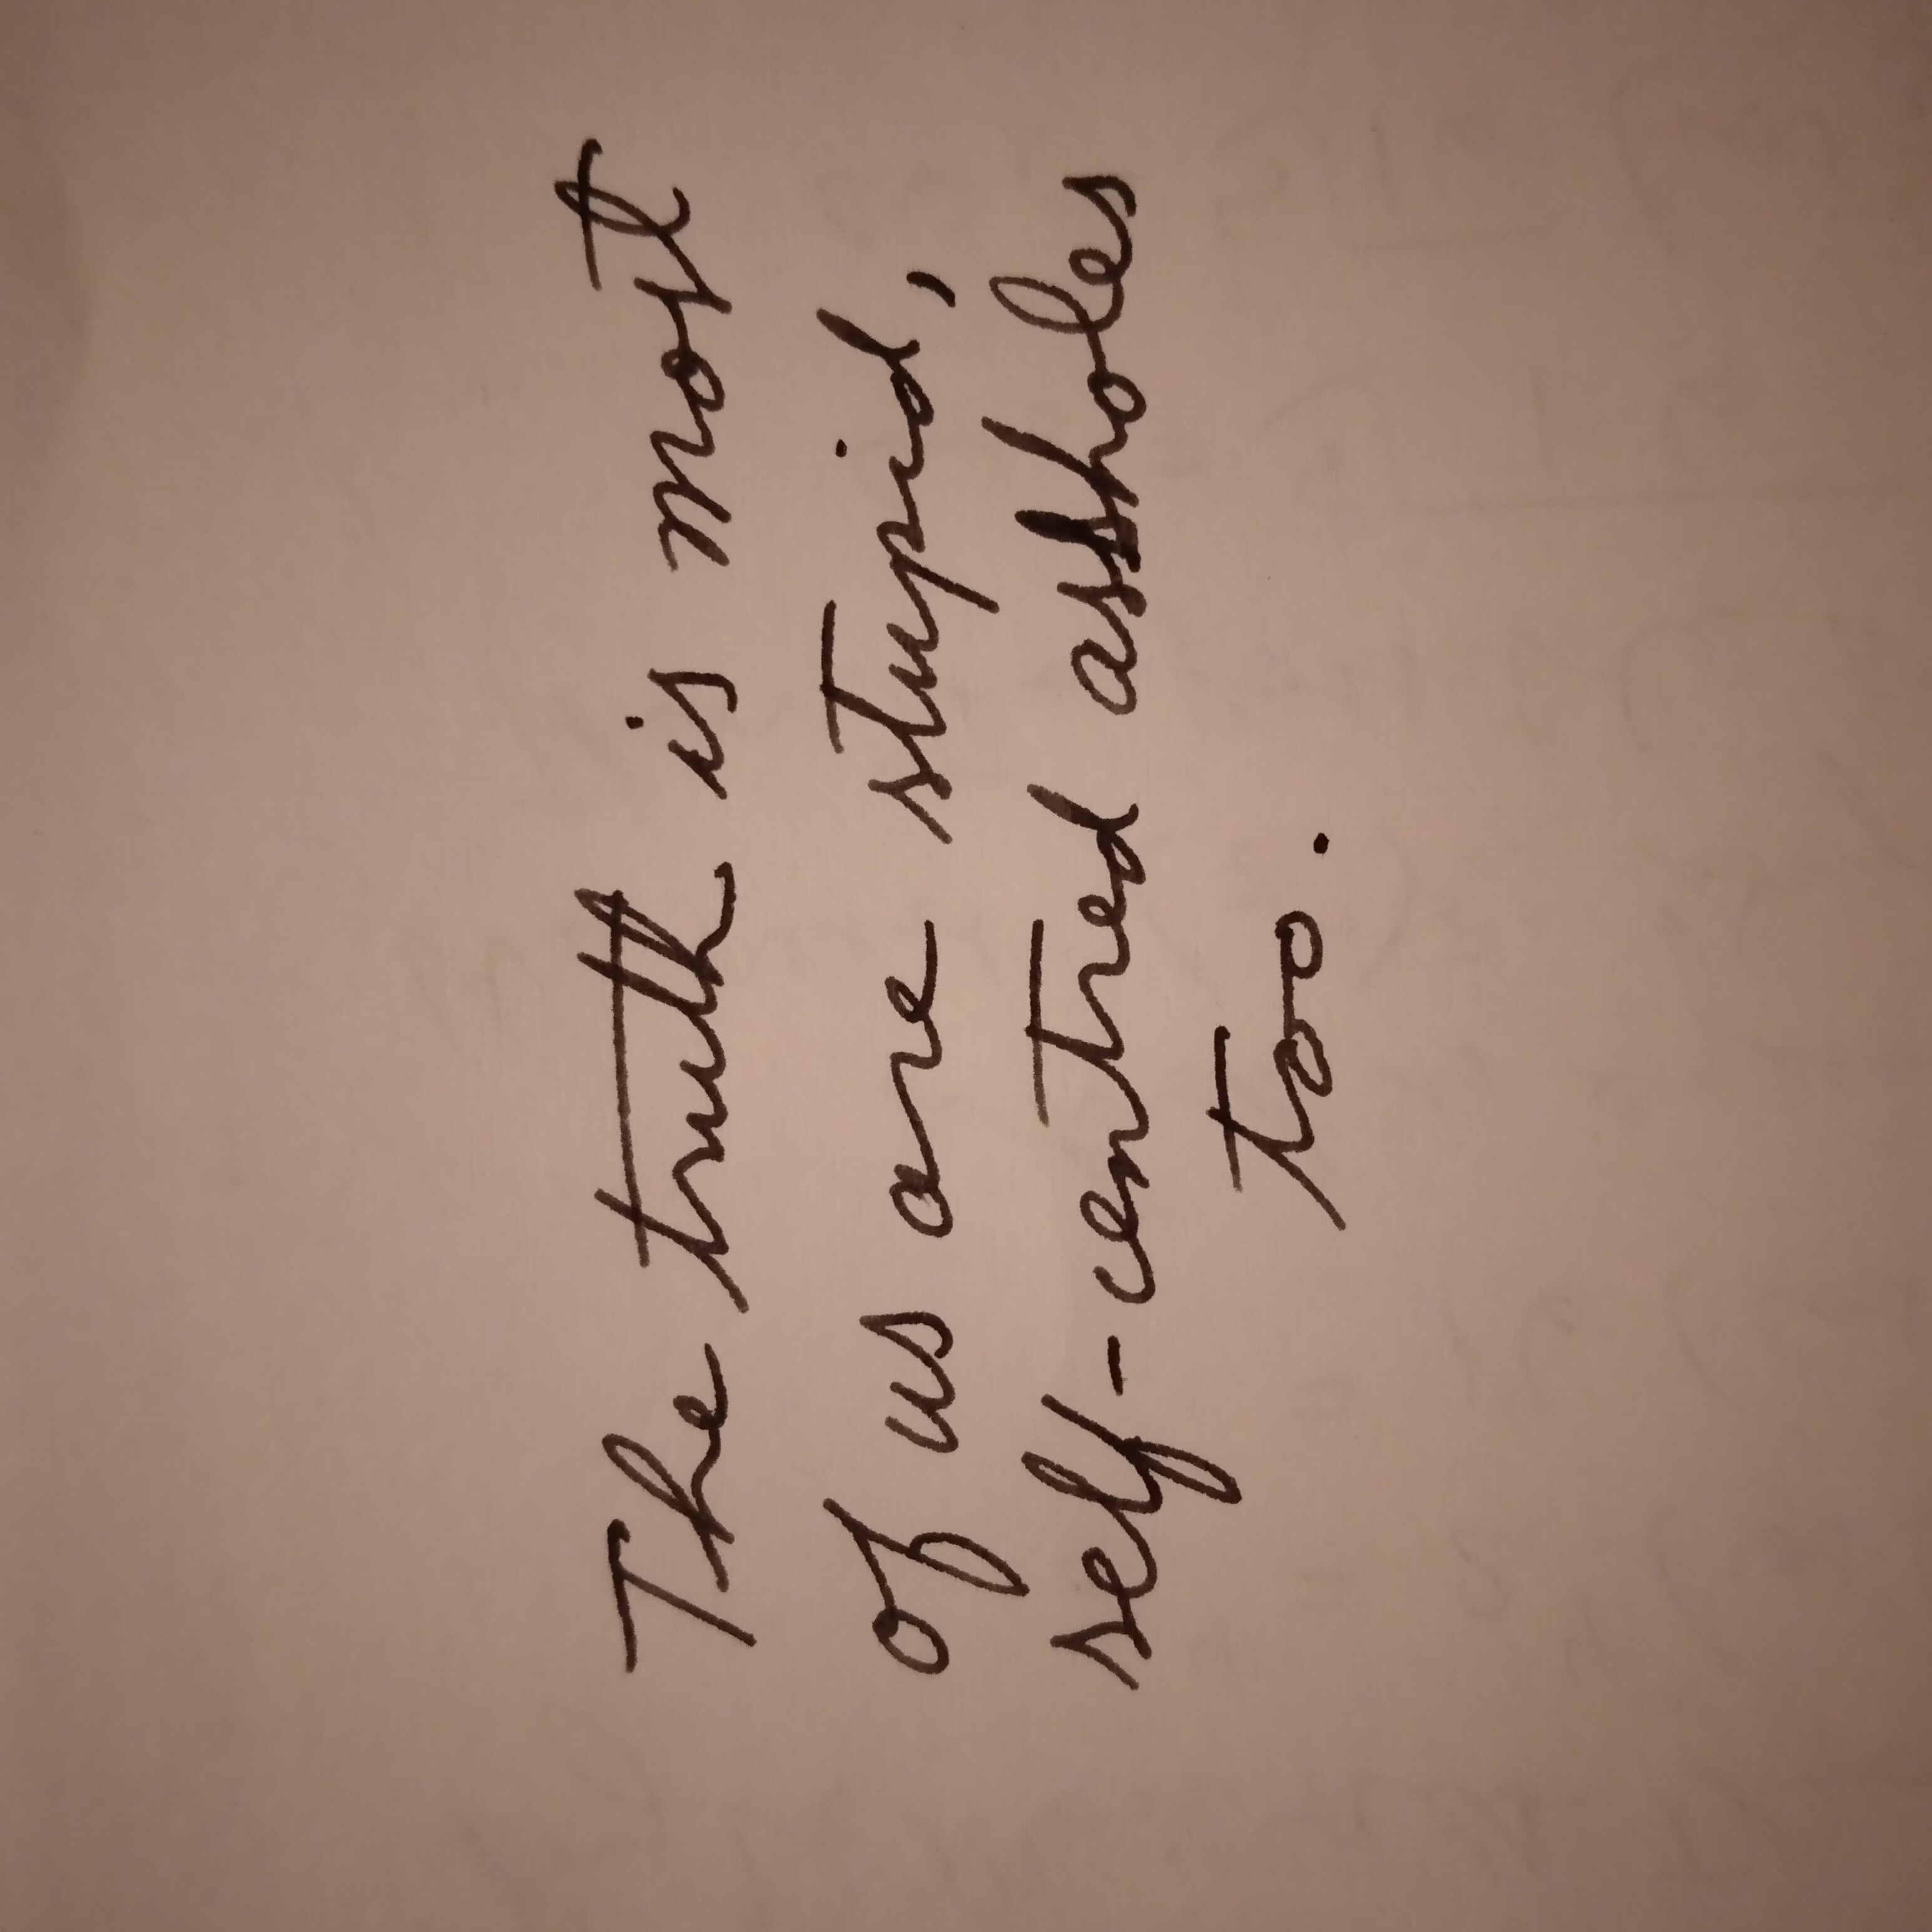 The truth is most
of us are stupid,
self-centred assholes
too.